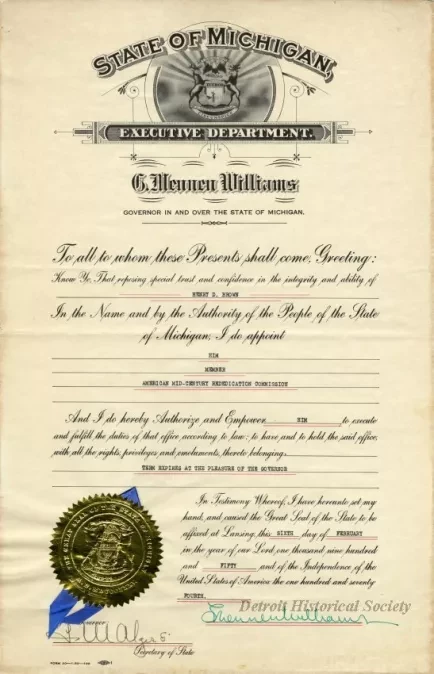 STATE OF MICHIGAN,
EXECUTIVE DEPARTMENT.
G. Mennen Williams
GOVERNOR IN AND OVER THE STATE OF MICHIGAN.
To all to whom these Presents shall come, Greeting:
Know Ye, That reposing special trust and confidence in the integrity and ability of
HENRY D. BROWN
In the Name and by the Authority of the People of the State
of Michigan, I do appoint
HIM
MEMBER
AMERICAN MID-CENTURY REDEDICATION COMMISSION
And I do hereby Authorize and Empower HIM to execute
and fulfill the duties of that office according to law; to have and to hold the said office,
with all the rights, privileges, and emoluments, thereto belonging.
TERM EXPIRES AT THE PLEASURE OF THE GOVERNOR
In Testimony Whereof, I have hereunto set my
hand, and caused the Great Seal of the State to be
affixed at Lansing, this day of FEBRUARY
in the year of our Lord one thousand nine hundred
and FIFTY and of the Independence of the
United States of America the one hundred and seventy
FOURTH.
Detroit Historical Society
G. Mennen Williams
F M Alger Jr
Secretary of State